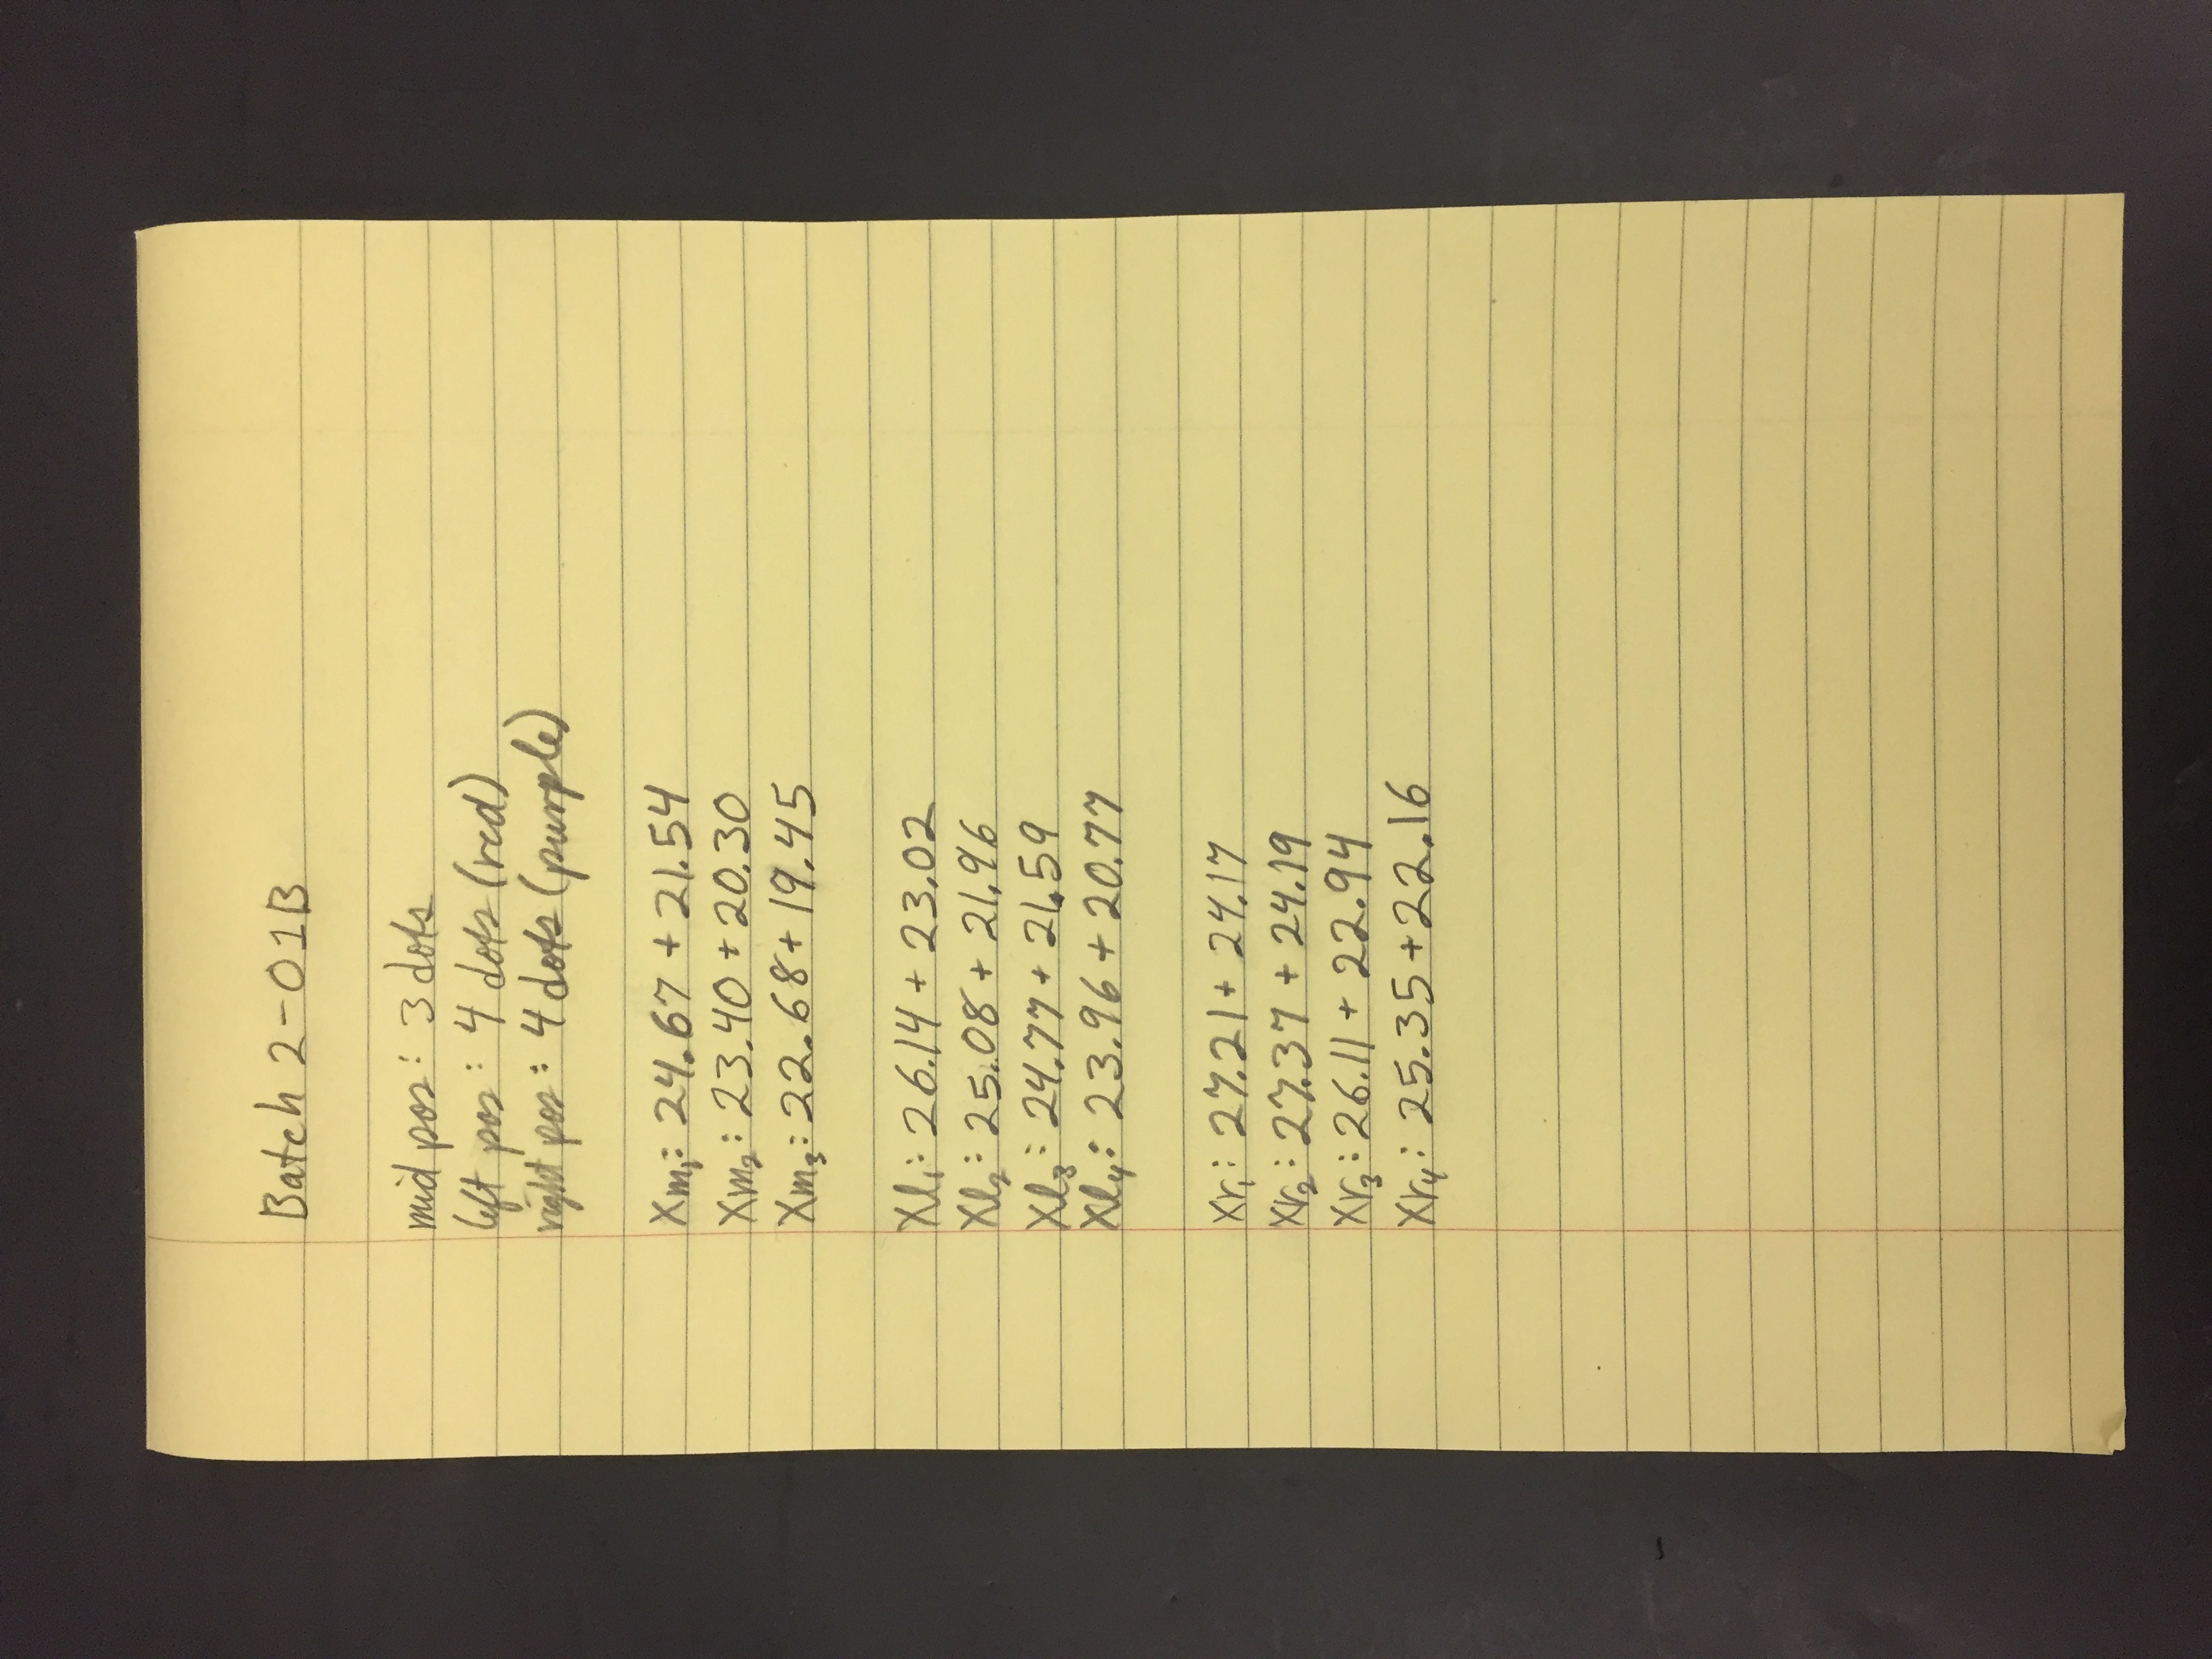 Batch 2-01B
mid pos: 3 dots
left pos: 4 dots (red)
right pos: 4 dots (purple)
Xm₁: 24.67 + 21.54
Xm₂: 23.40 + 20.30
Xm₃: 22.68 + 19.45
Xl₁: 26.14 + 23.02
Xl₂: 25.08 + 21.96
Xl₃: 24.77 + 21.59
Xl₄: 23.96 + 20.77
Xr₁: 27.21 + 24.17
Xr₂: 27.37 + 24.19
Xr₃: 26.11 + 22.94
Xr₄: 25.35 + 22.16